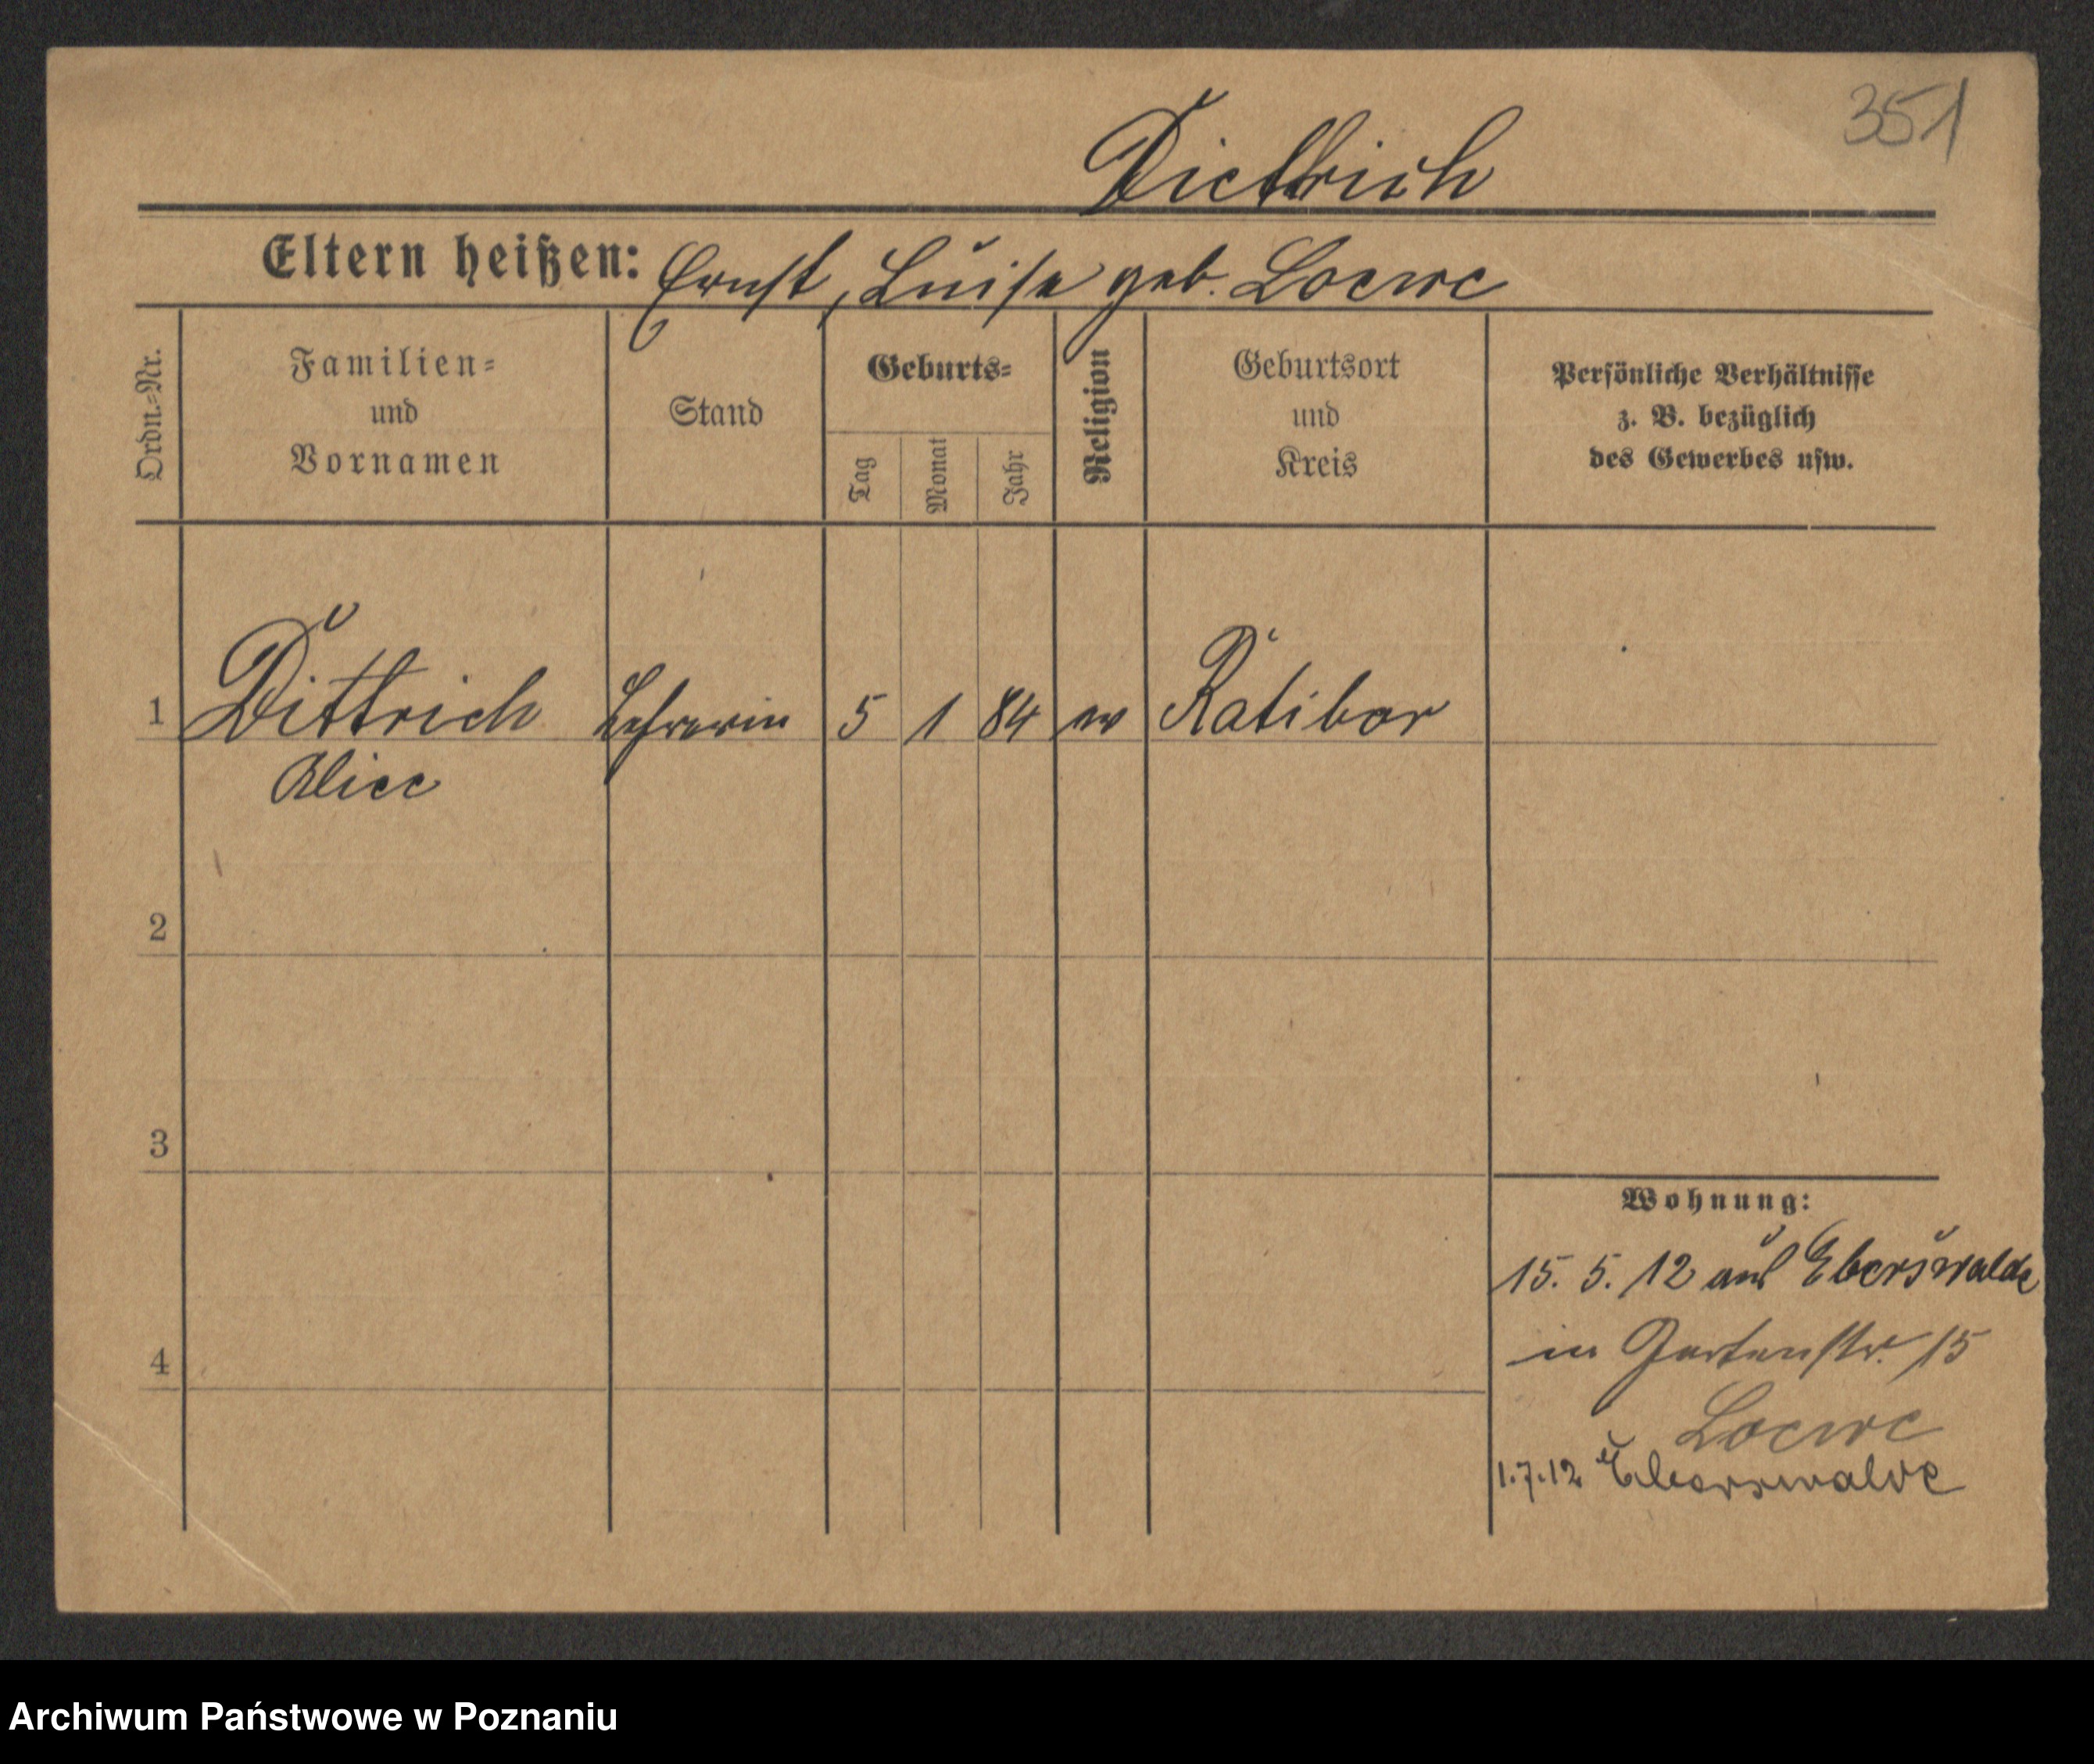 351
Dietrich
Eltern heißen: Ernst, Luise geb. Loewe
Ordn.=Nr.
Familien=
und
Vornamen
Stand
Geburts=
Tag
Monat
Jahr
Religion
Geburtsort
und
Kreis
Persönliche Verhältnisse
z. B. bezüglich
des Gewerbes usw.
1 Dittrich Lehrerin 5 1 84 ev Ratibor
Alice
2
3
Wohnung:
15. 5. 12 aus Eberswalde
4
in Gartenstr. 15
Loewe
1.7.12 Eberswalde
Archiwum Państwowe w Poznaniu